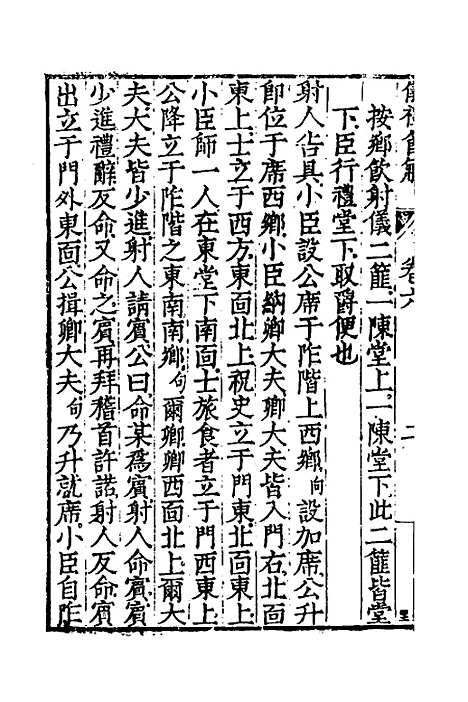 儀禮節解 卷六 二
按鄉飲射儀二篚一陳堂上一陳堂下此二篚皆堂
下臣行禮堂下取爵便也
射人告具小臣設公席于阼階上西鄉向設加席公升
即位于席西鄉小臣納卿大夫卿大夫皆入門右北面
東上士立于西方東面北上祝史立于門東北面東上
小臣師一人在東堂下南面士旅食者立于門西東上
公降立于阼階之東南南鄉句爾卿卿西面北上爾大
夫大夫皆少進射人請賓公曰命某為賓射人命賓賓
少進禮辭反命又命之賓再拜稽首許諾射人反命賓
出立于門外東面公揖卿大夫句乃升就席小臣自阼